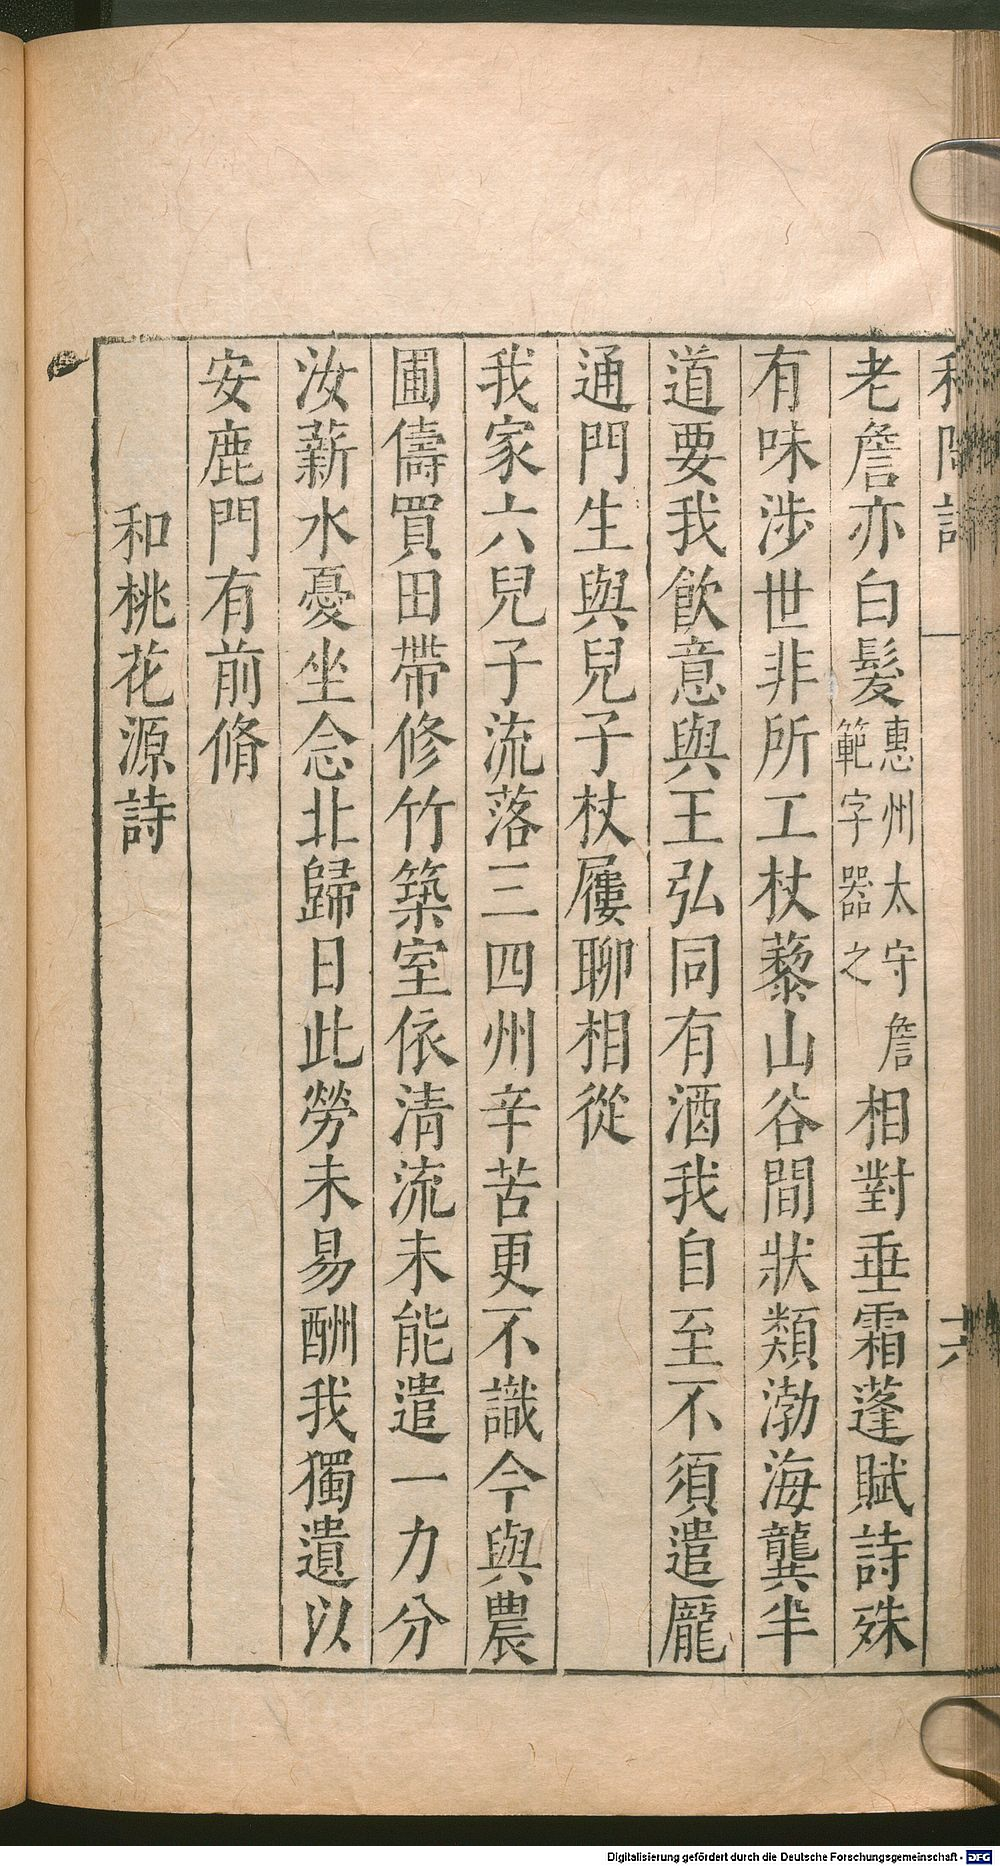 和陶詩
十六
老詹亦白髮惠州太守詹範字器之相對垂霜蓬賦詩殊
有味涉世非所工杖藜山谷間狀類渤海龔半
道要我飲意與王弘同有酒我自至不須遣龐
通門生與兒子杖屨聊相從
我家六兒子流落三四州辛苦更不識今與農
圃儔買田帶修竹築室依清流未能遣一力分
汝薪水憂坐念北歸日此勞未易酬我獨遺以
安鹿門有前脩
和桃花源詩
Digitalisierung gefördert durch die Deutsche Forschungsgemeinschaft - DFG